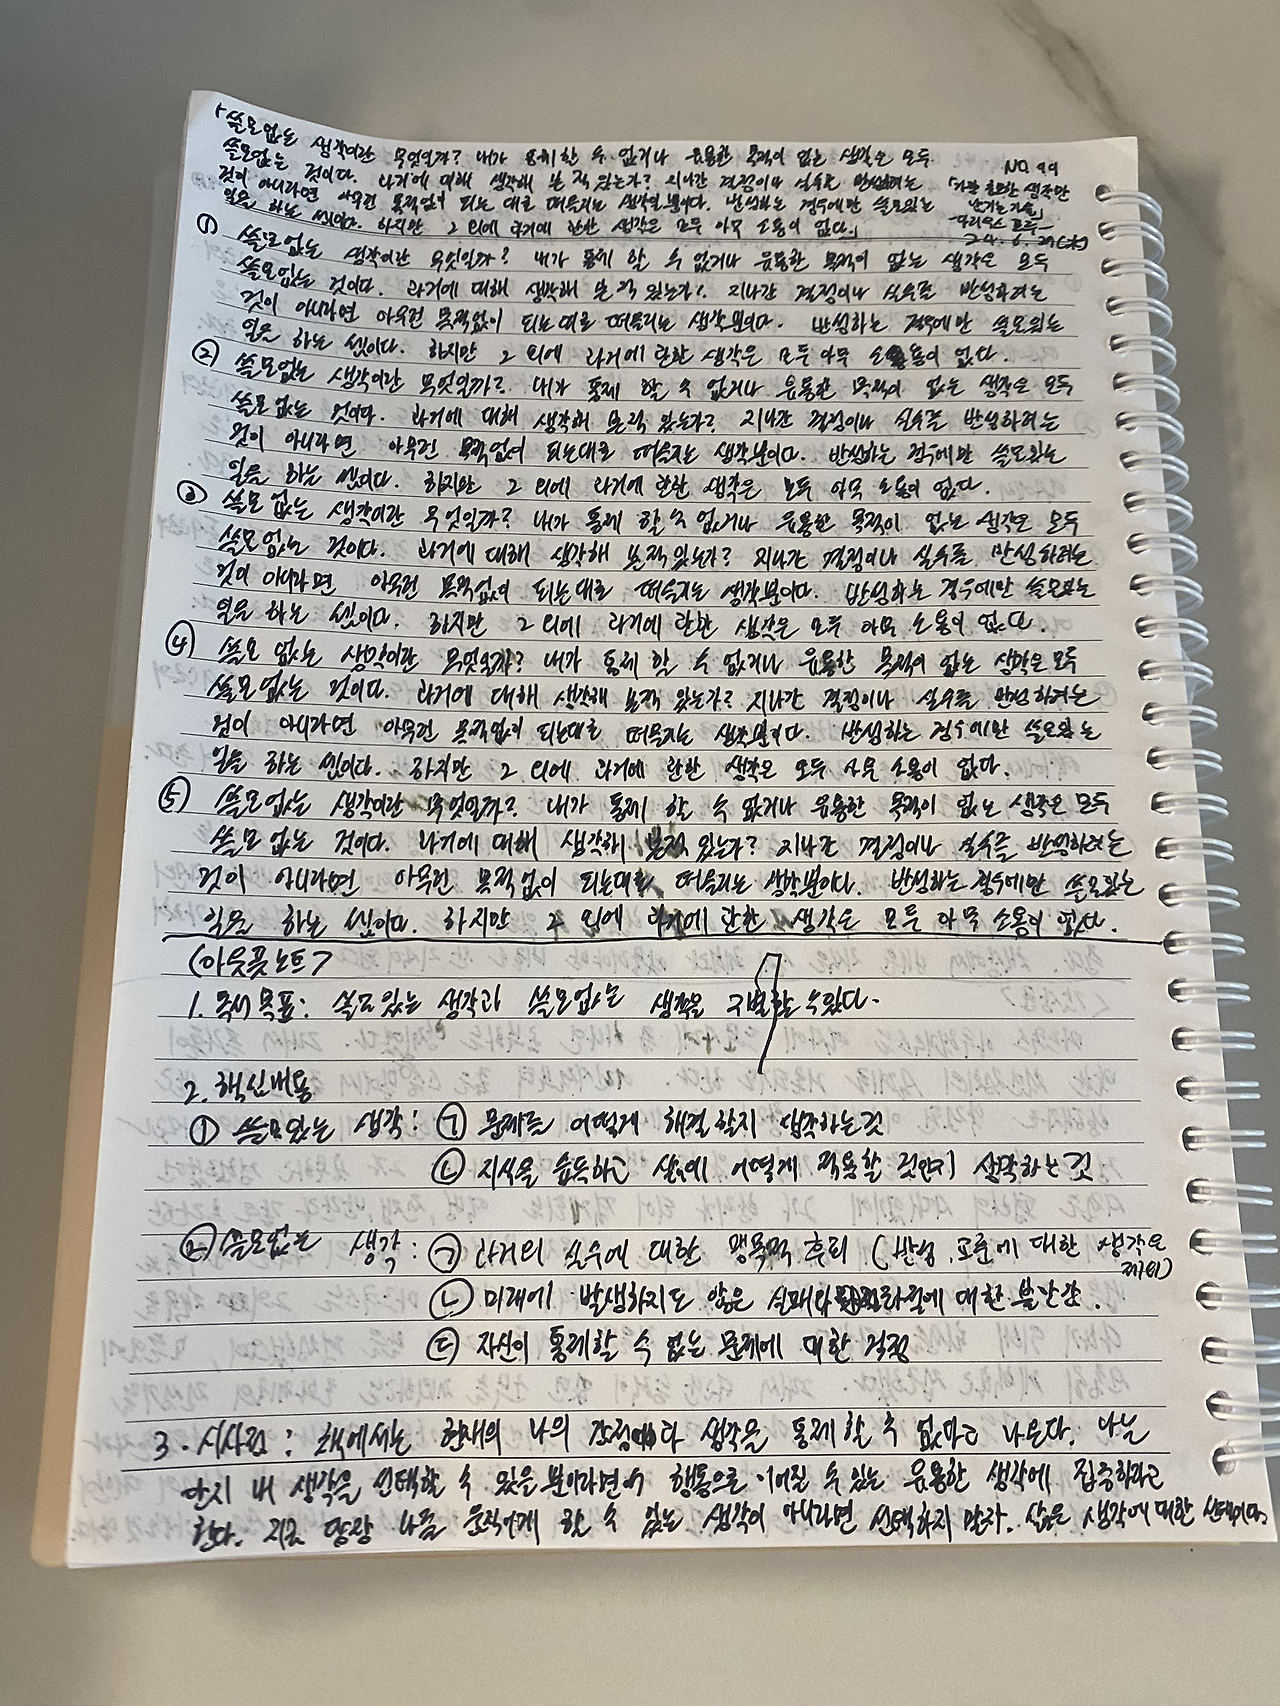 「쓸모없는 생각이란 무엇일까? 내가 통제 할 수 없거나 유용한 목적이 없는 생각은 모두
쓸모없는 것이다. 과거에 대해 생각해 본 적 있는가? 지나간 결정이나 실수를 반성하려는
것이 아니라면 아무런 목적없이 되는 대로 떠올리는 생각일 뿐이다. 반성하는 경우에만 쓸모있는
일을 하는 셈이다. 하지만 그 외에 과거에 관한 생각은 모두 아무 소용이 없다.」
NO. 99
「나를 생각만
남기는 기술」
-다리우스 포루-
24. 6. 20(木)
① 쓸모없는 생각이란 무엇일까? 내가 통제 할 수 없거나 유용한 목적이 없는 생각은 모두
쓸모없는 것이다. 과거에 대해 생각해 본 적 있는가? 지나간 결정이나 실수를 반성하려는
것이 아니라면 아무런 목적없이 되는대로 떠올리는 생각뿐이다. 반성하는 경우에만 쓸모있는
일을 하는 셈이다. 하지만 그 외에 과거에 관한 생각은 모두 아무 소용이 없다.
② 쓸모없는 생각이란 무엇일까? 내가 통제 할 수 없거나 유용한 목적이 없는 생각은 모두
쓸모없는 것이다. 과거에 대해 생각해 본 적 있는가? 지나간 결정이나 실수를 반성하려는
것이 아니라면 아무런 목적없이 되는대로 떠올리는 생각뿐이다. 반성하는 경우에만 쓸모있는
일을 하는 셈이다. 하지만 그 외에 과거에 관한 생각은 모두 아무 소용이 없다.
③ 쓸모 없는 생각이란 무엇일까? 내가 통제 할 수 없거나 유용한 목적이 없는 생각은 모두
쓸모없는 것이다. 과거에 대해 생각해 본 적 있는가? 지나간 결정이나 실수를 반성하려는
것이 아니라면 아무런 목적없이 되는대로 떠올리는 생각뿐이다. 반성하는 경우에만 쓸모있는
일을 하는 셈이다. 하지만 그 외에 과거에 관한 생각은 모두 아무 소용이 없다.
④ 쓸모 없는 생각이란 무엇일까? 내가 통제 할 수 없거나 유용한 목적이 없는 생각은 모두
쓸모없는 것이다. 과거에 대해 생각해 본적 있는가? 지나간 결정이나 실수를 반성하려는
것이 아니라면 아무런 목적없이 되는대로 떠올리는 생각뿐이다. 반성하는 경우에만 쓸모있는
일을 하는 셈이다. 하지만 그 외에 과거에 관한 생각은 모두 아무 소용이 없다.
⑤ 쓸모없는 생각이란 무엇일까? 내가 통제 할 수 없거나 유용한 목적이 없는 생각은 모두
쓸모없는 것이다. 과거에 대해 생각해 본적 있는가? 지나간 결정이나 실수를 반성하려는
것이 아니라면 아무런 목적없이 되는대로 떠올리는 생각뿐이다. 반성하는 경우에만 쓸모있는
일을 하는 셈이다. 하지만 그 외에 과거에 관한 생각은 모두 아무 소용이 없다.
<아웃풋노트>
1. 독서 목표: 쓸모있는 생각과 쓸모없는 생각을 구별할 수있다.
2. 핵심내용
① 쓸모있는 생각: ㉠ 문제를 어떻게 해결할지 생각하는것
㉡ 지식을 습득하고 삶에 어떻게 적용할 것인가 생각하는 것
② 쓸모없는 생각: ㉠ 과거의 실수에 대한 맹목적 후회 (반성, 교훈에 대한 생각은
제외)
㉡ 미래에 발생하지도 않은 실패와 에 대한 불안감.
㉢ 자신이 통제할 수 없는 문제에 대한 걱정
3. 시사점: 책에서는 현재의 나의 감정이나 생각을 통제할 수 없다고 나온다. 나는
단지 내 생각을 선택할 수 있을 뿐이라면서 행동으로 이어질 수 있는 유용한 생각에 집중하라고
한다. 지금 당장 나를 움직이게 할 수 있는 생각이 아니라면 선택하지 말자. 삶은 생각에 대한 선택이다.